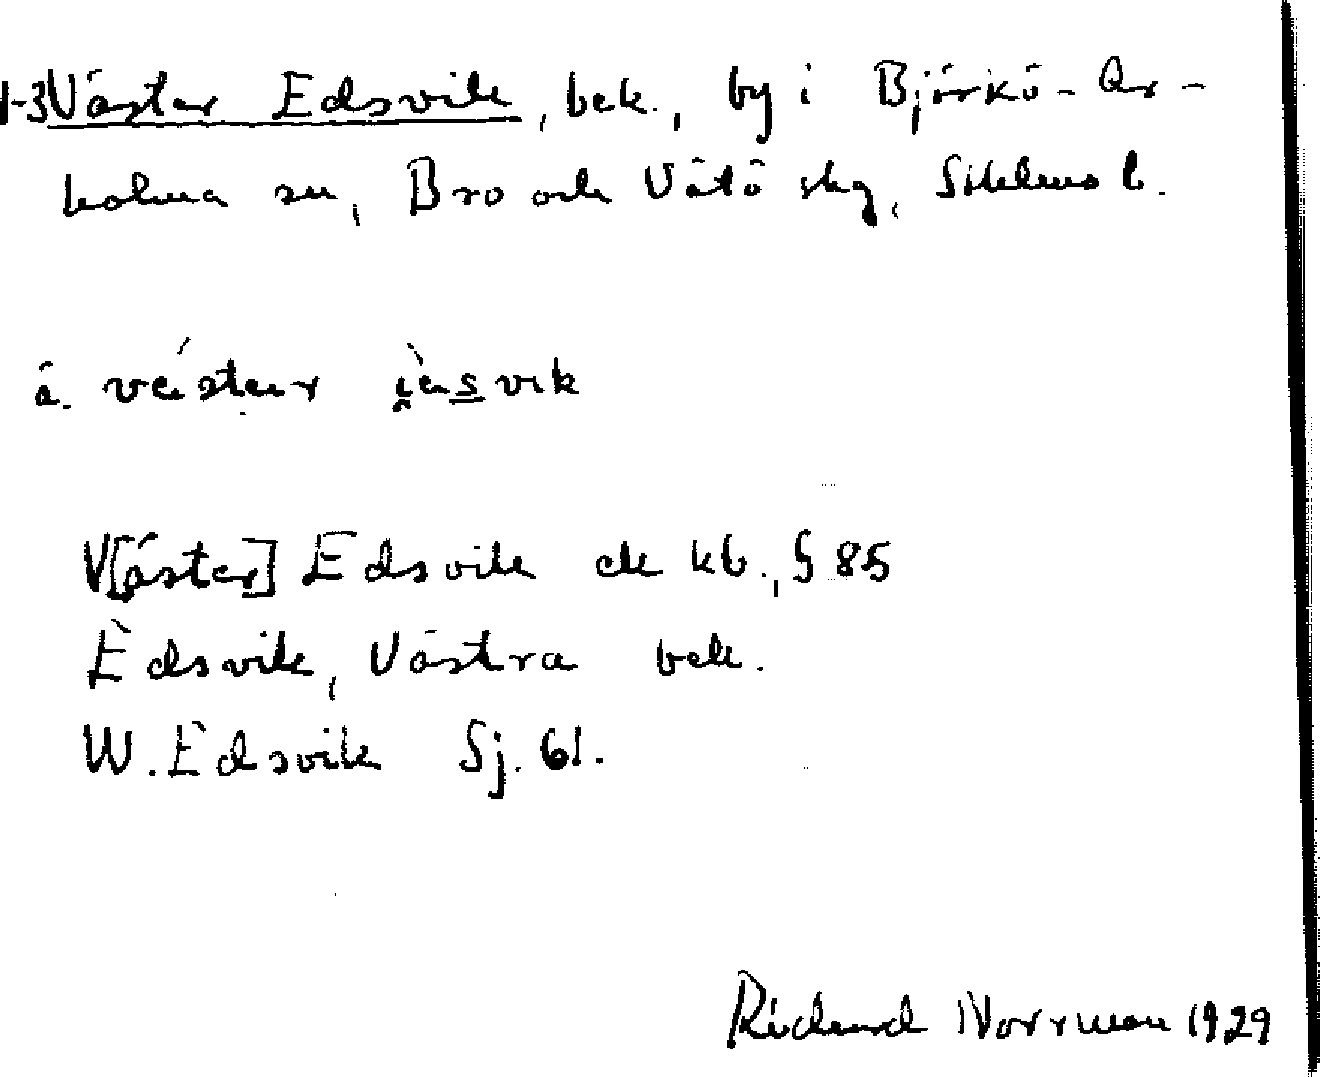 1-3 Väster Edsvik, bek., by i Björkö-Ar-
holma sn, Bro och Vätö skg, Sthlms l.
V[äster] Edsvik ck kb., § 85
Edsvik, Västra bek.
W. Edsvik Sj. 61.
Richard Norrman 1929